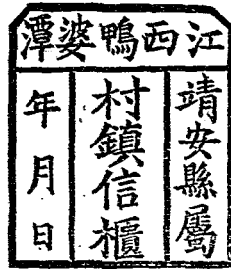 江西鴨婆潭
靖安縣屬
村鎮信櫃
年月日